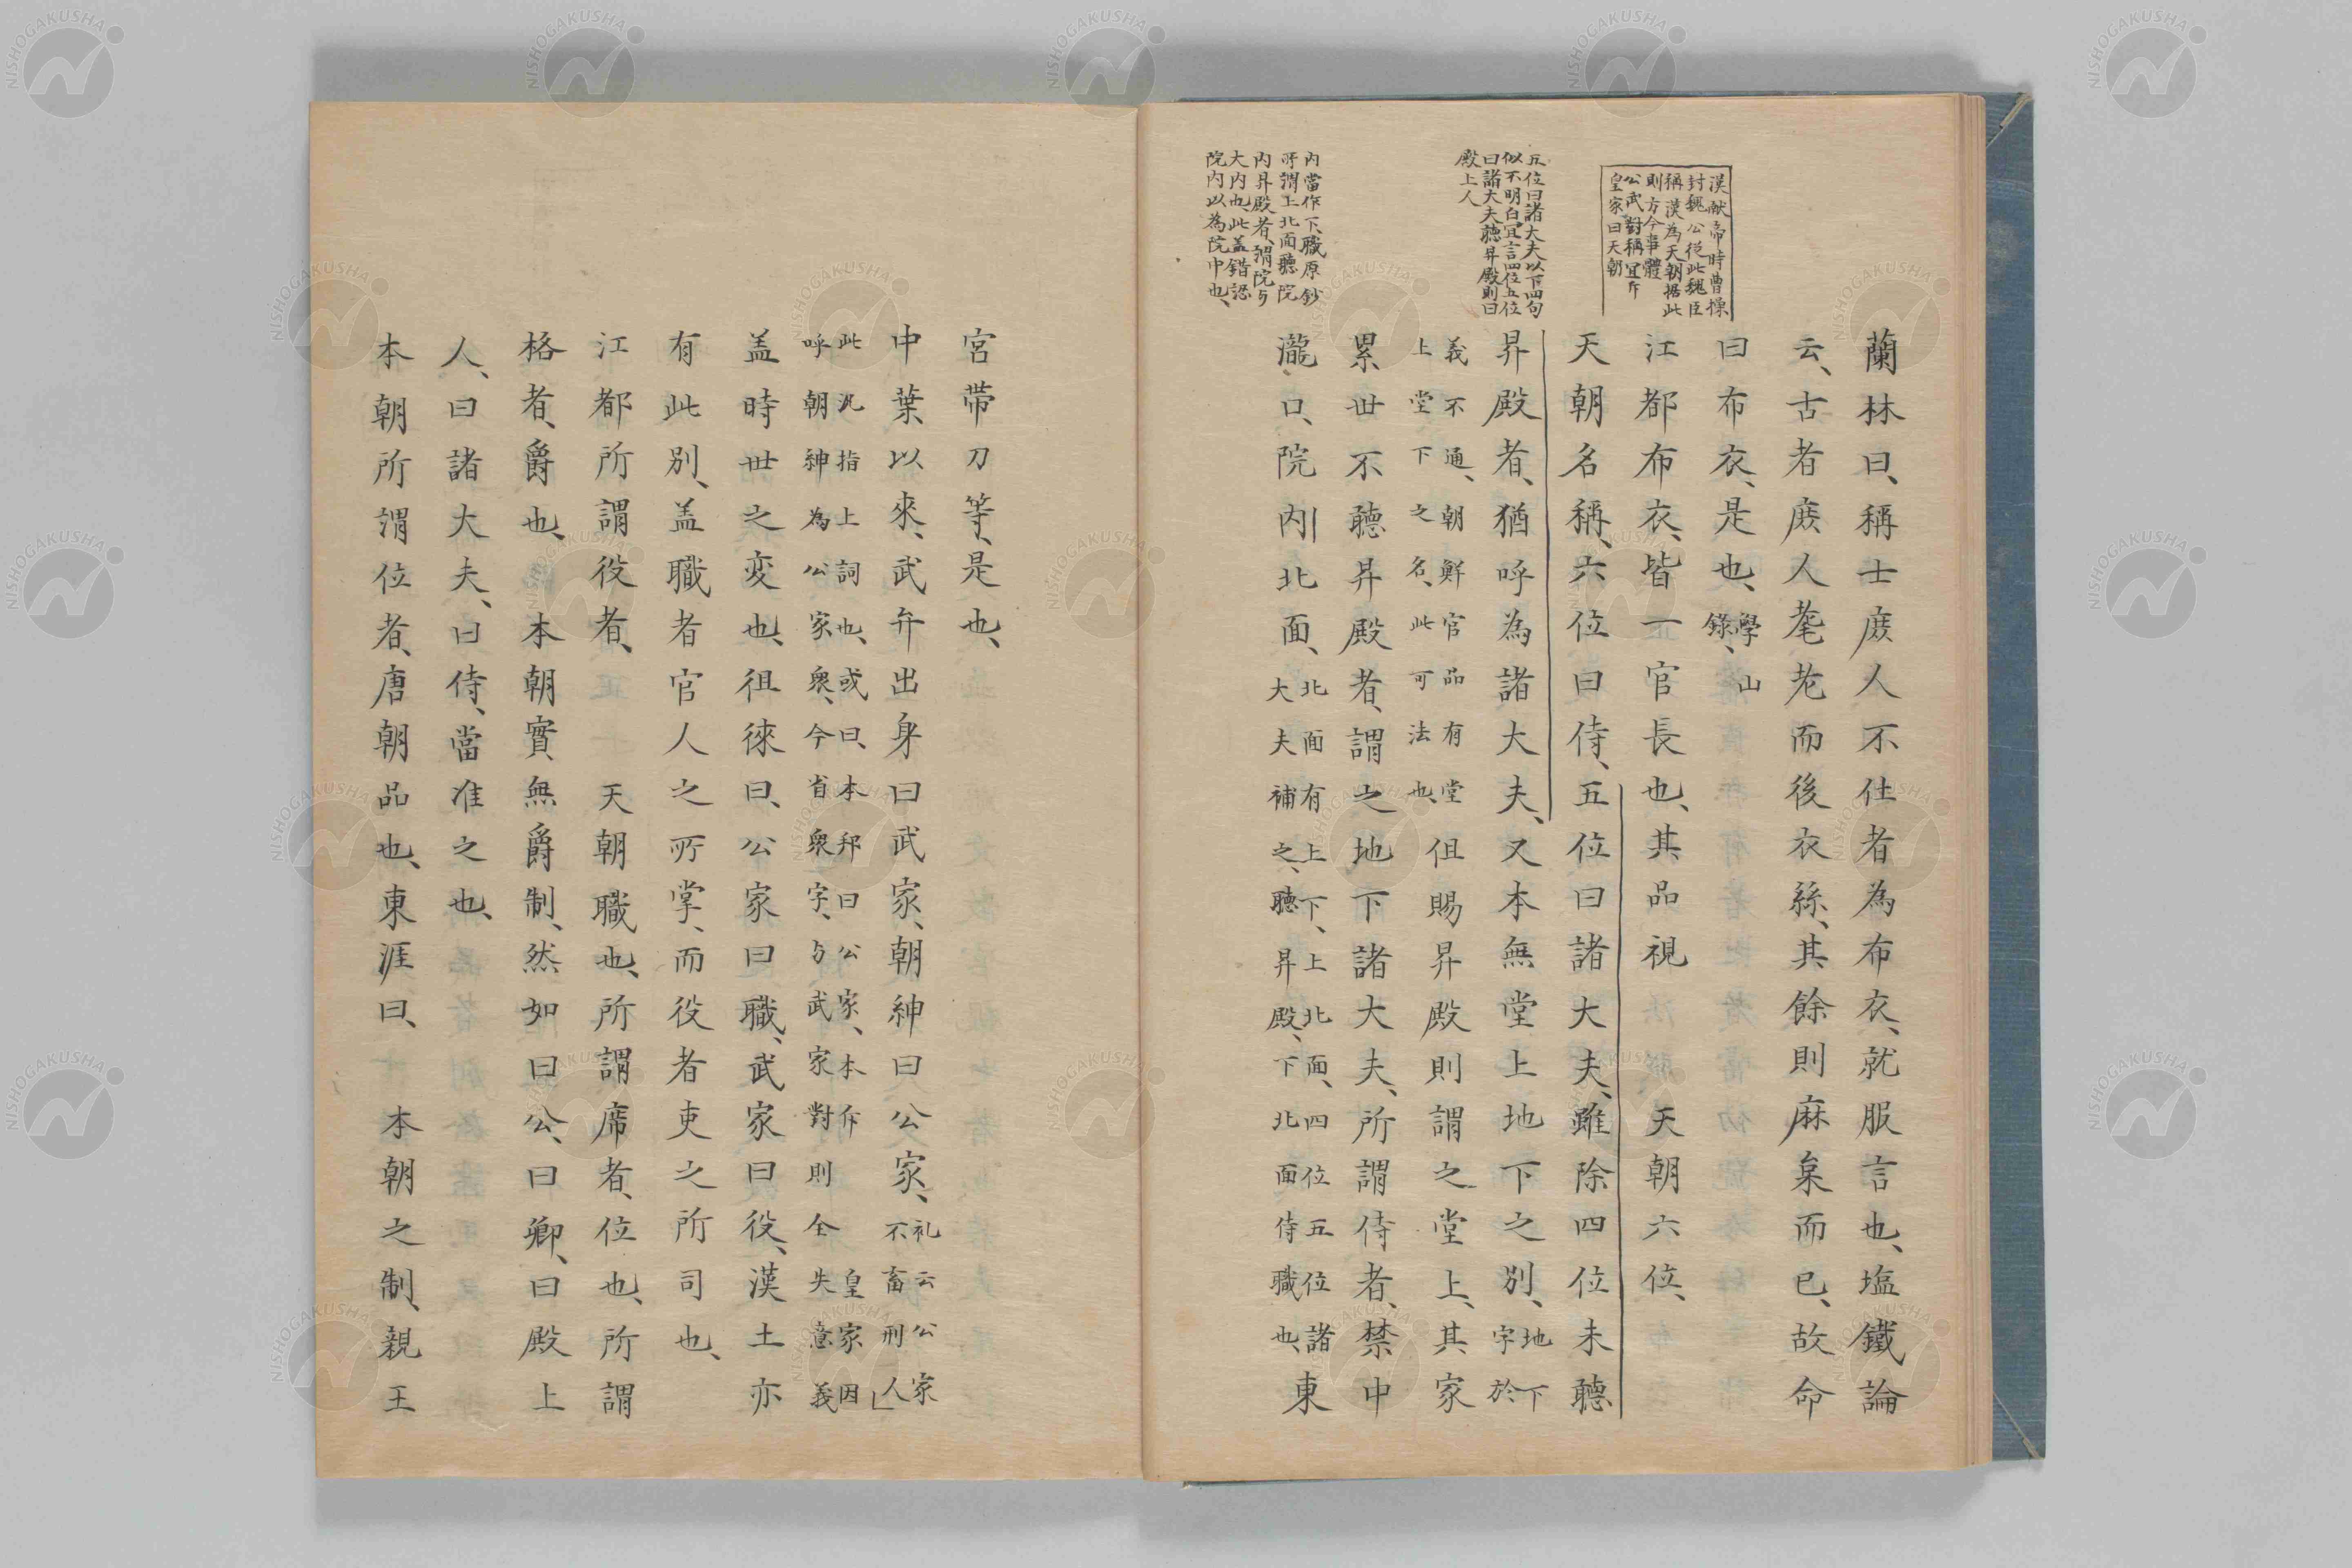 漢献帝時曹操
封魏公從此魏臣
稱漢為天朝据此
則方今事體
公武對稱冝斥
皇家曰天朝
五位曰諸大夫以下四句
似不明白冝言四位五位
曰諸大夫聽昇殿則曰
殿上人
内當作下、職原鈔
所謂上北面聽院
内昇殿者、謂院与
大内也此盖錯認
院内以為院中也、
蘭林曰、稱士庻人不仕者為布衣、就服言也、塩鐵論
云、古者庻人耄老而後衣絲、其餘則麻枲而已、故命
曰布衣、是也、學山錄、
江都布衣、皆一官長也、其品視 天朝六位、
天朝名稱、六位曰侍、五位曰諸大夫、雖除四位未聽
昇殿者、猶呼為諸大夫、又本無堂上地下之別、地下字於
義不通、朝鮮官品有堂上堂下之名、此可法也、但賜昇殿則謂之堂上、其家
累世不聽昇殿者、謂之地下諸大夫、所謂侍者、禁中
瀧口、院内北面、北面有上下、上北面、四位五位諸大夫補之、聽昇殿、下北面侍職也、東
宮帶刀等、是也、
中葉以來、武弁出身曰武家、朝紳曰公家、礼云公家不畜刑人」
此汎指上詞也、或曰、本邦曰公家、本斥皇家因呼朝紳為公家衆、今省衆字、与武家對則全失意義
盖時世之変也、徂徠曰、公家曰職、武家曰役、漢土亦
有此別、盖職者官人之所掌、而役者吏之所司也、
江都所謂役者、 天朝職也、所謂席者、位也、所謂
格者、爵也、 本朝實無爵制、然如曰公、曰卿、曰殿上
人、曰諸大夫、曰侍、當准之也、
本朝所謂位者、唐朝品也、東涯曰、 本朝之制、親王